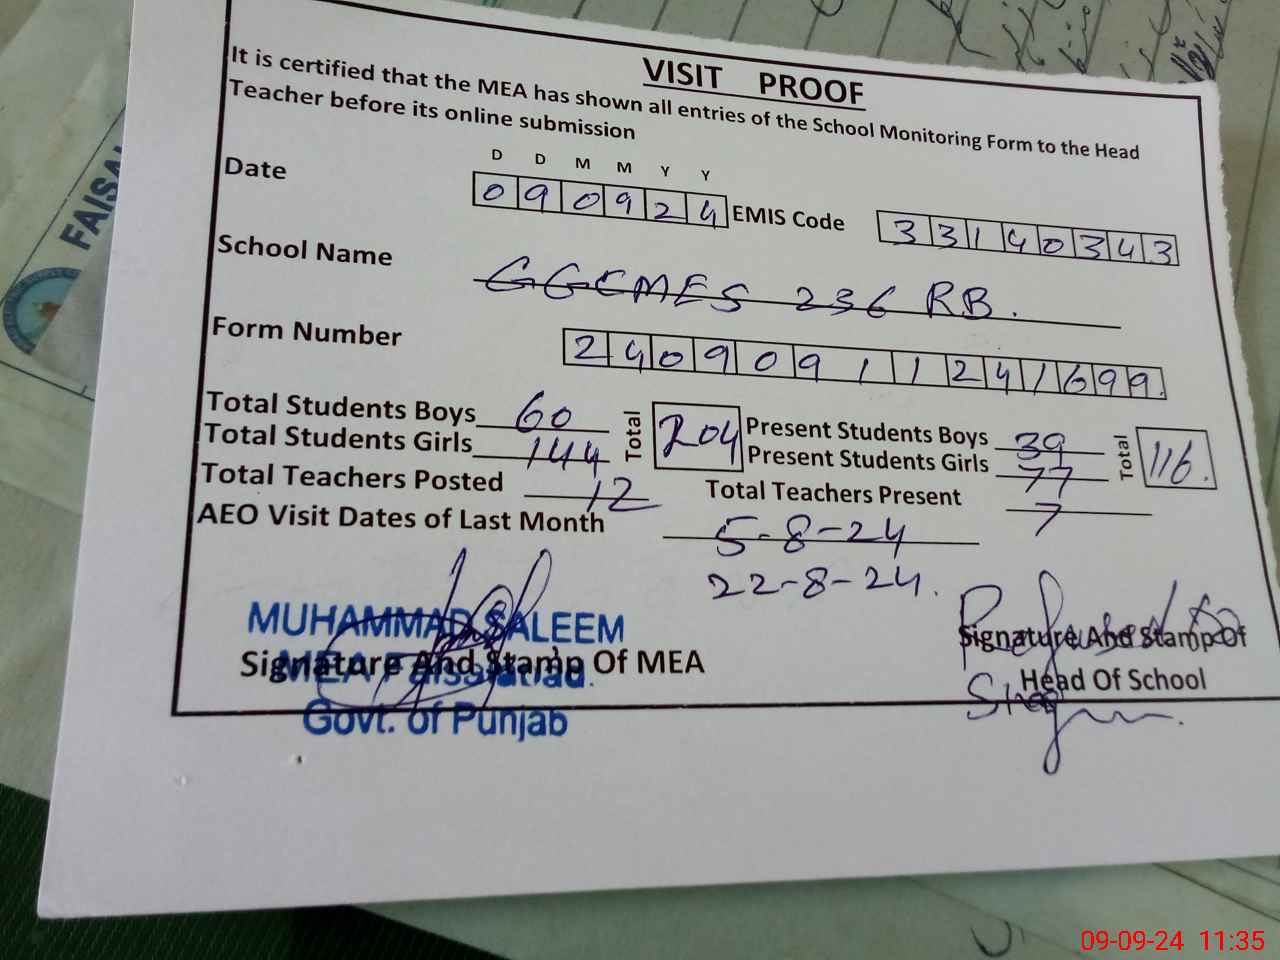 VISIT PROOF
It is certified that the MEA has shown all entries of the School Monitoring Form to the Head
Teacher before its online submission
D D M M Y Y
Date 0 9 0 9 2 4 EMIS Code 3 3 1 4 0 3 4 3
School Name GGCMES 236 RB.
Form Number 2 4 0 9 0 9 1 1 2 4 1 6 9 9
Total Students Boys 60 Total 204 Present Students Boys 39 Total 116.
Total Students Girls 144 Present Students Girls 77
Total Teachers Posted 12 Total Teachers Present 7
AEO Visit Dates of Last Month 5-8-24
22-8-24.
MUHAMMAD SALEEM
Signature And Stamp Of MEA
MEA Faisalabad.
Govt. of Punjab
Refused to
Signature And Stamp Of
Head Of School
Sign
FAISAL
09-09-24 11:35